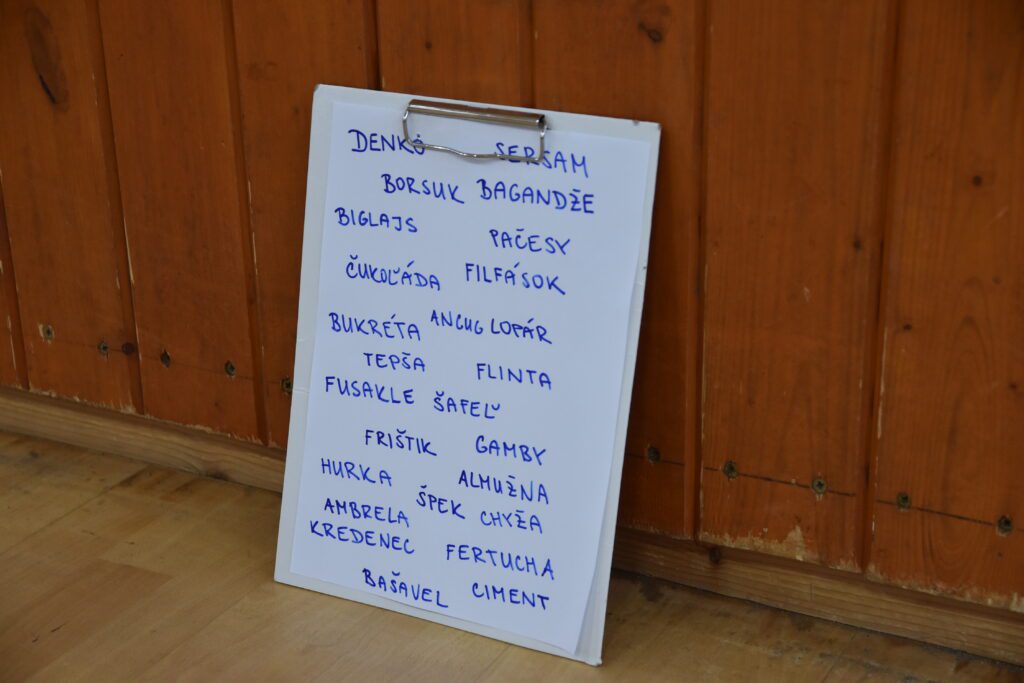 DENKO SERSAM
BORSUK BAGANDŽE
BIGLAJS PAČESY
ČUKOĽÁDA FILFÁSOK
BUKRÉTA ANCUG LOPÁR
TEPŠA FLINTA
FUSAKLE ŠAFEĽ
FRIŠTIK GAMBY
HURKA ALMUŽNA
AMBRELA ŠPEK CHYŽA
KREDENEC FERTUCHA
BAŠAVEL CIMENT